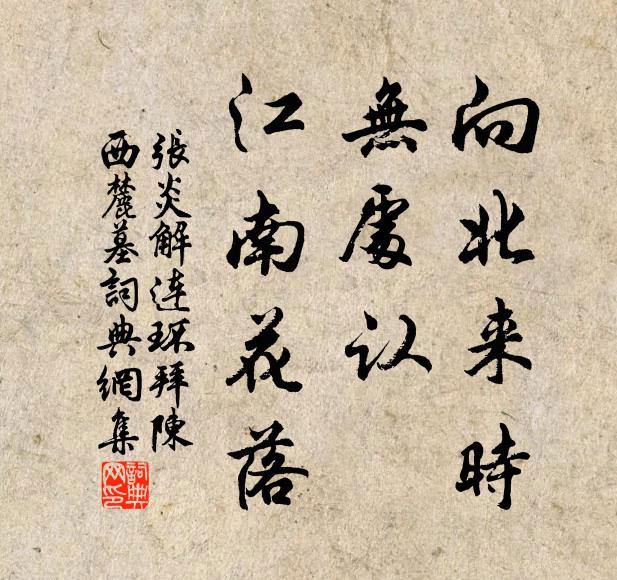 向北来時
無處认
江南花落
張炎解連环拜陳
西麓墓詞典網集
詞典网印